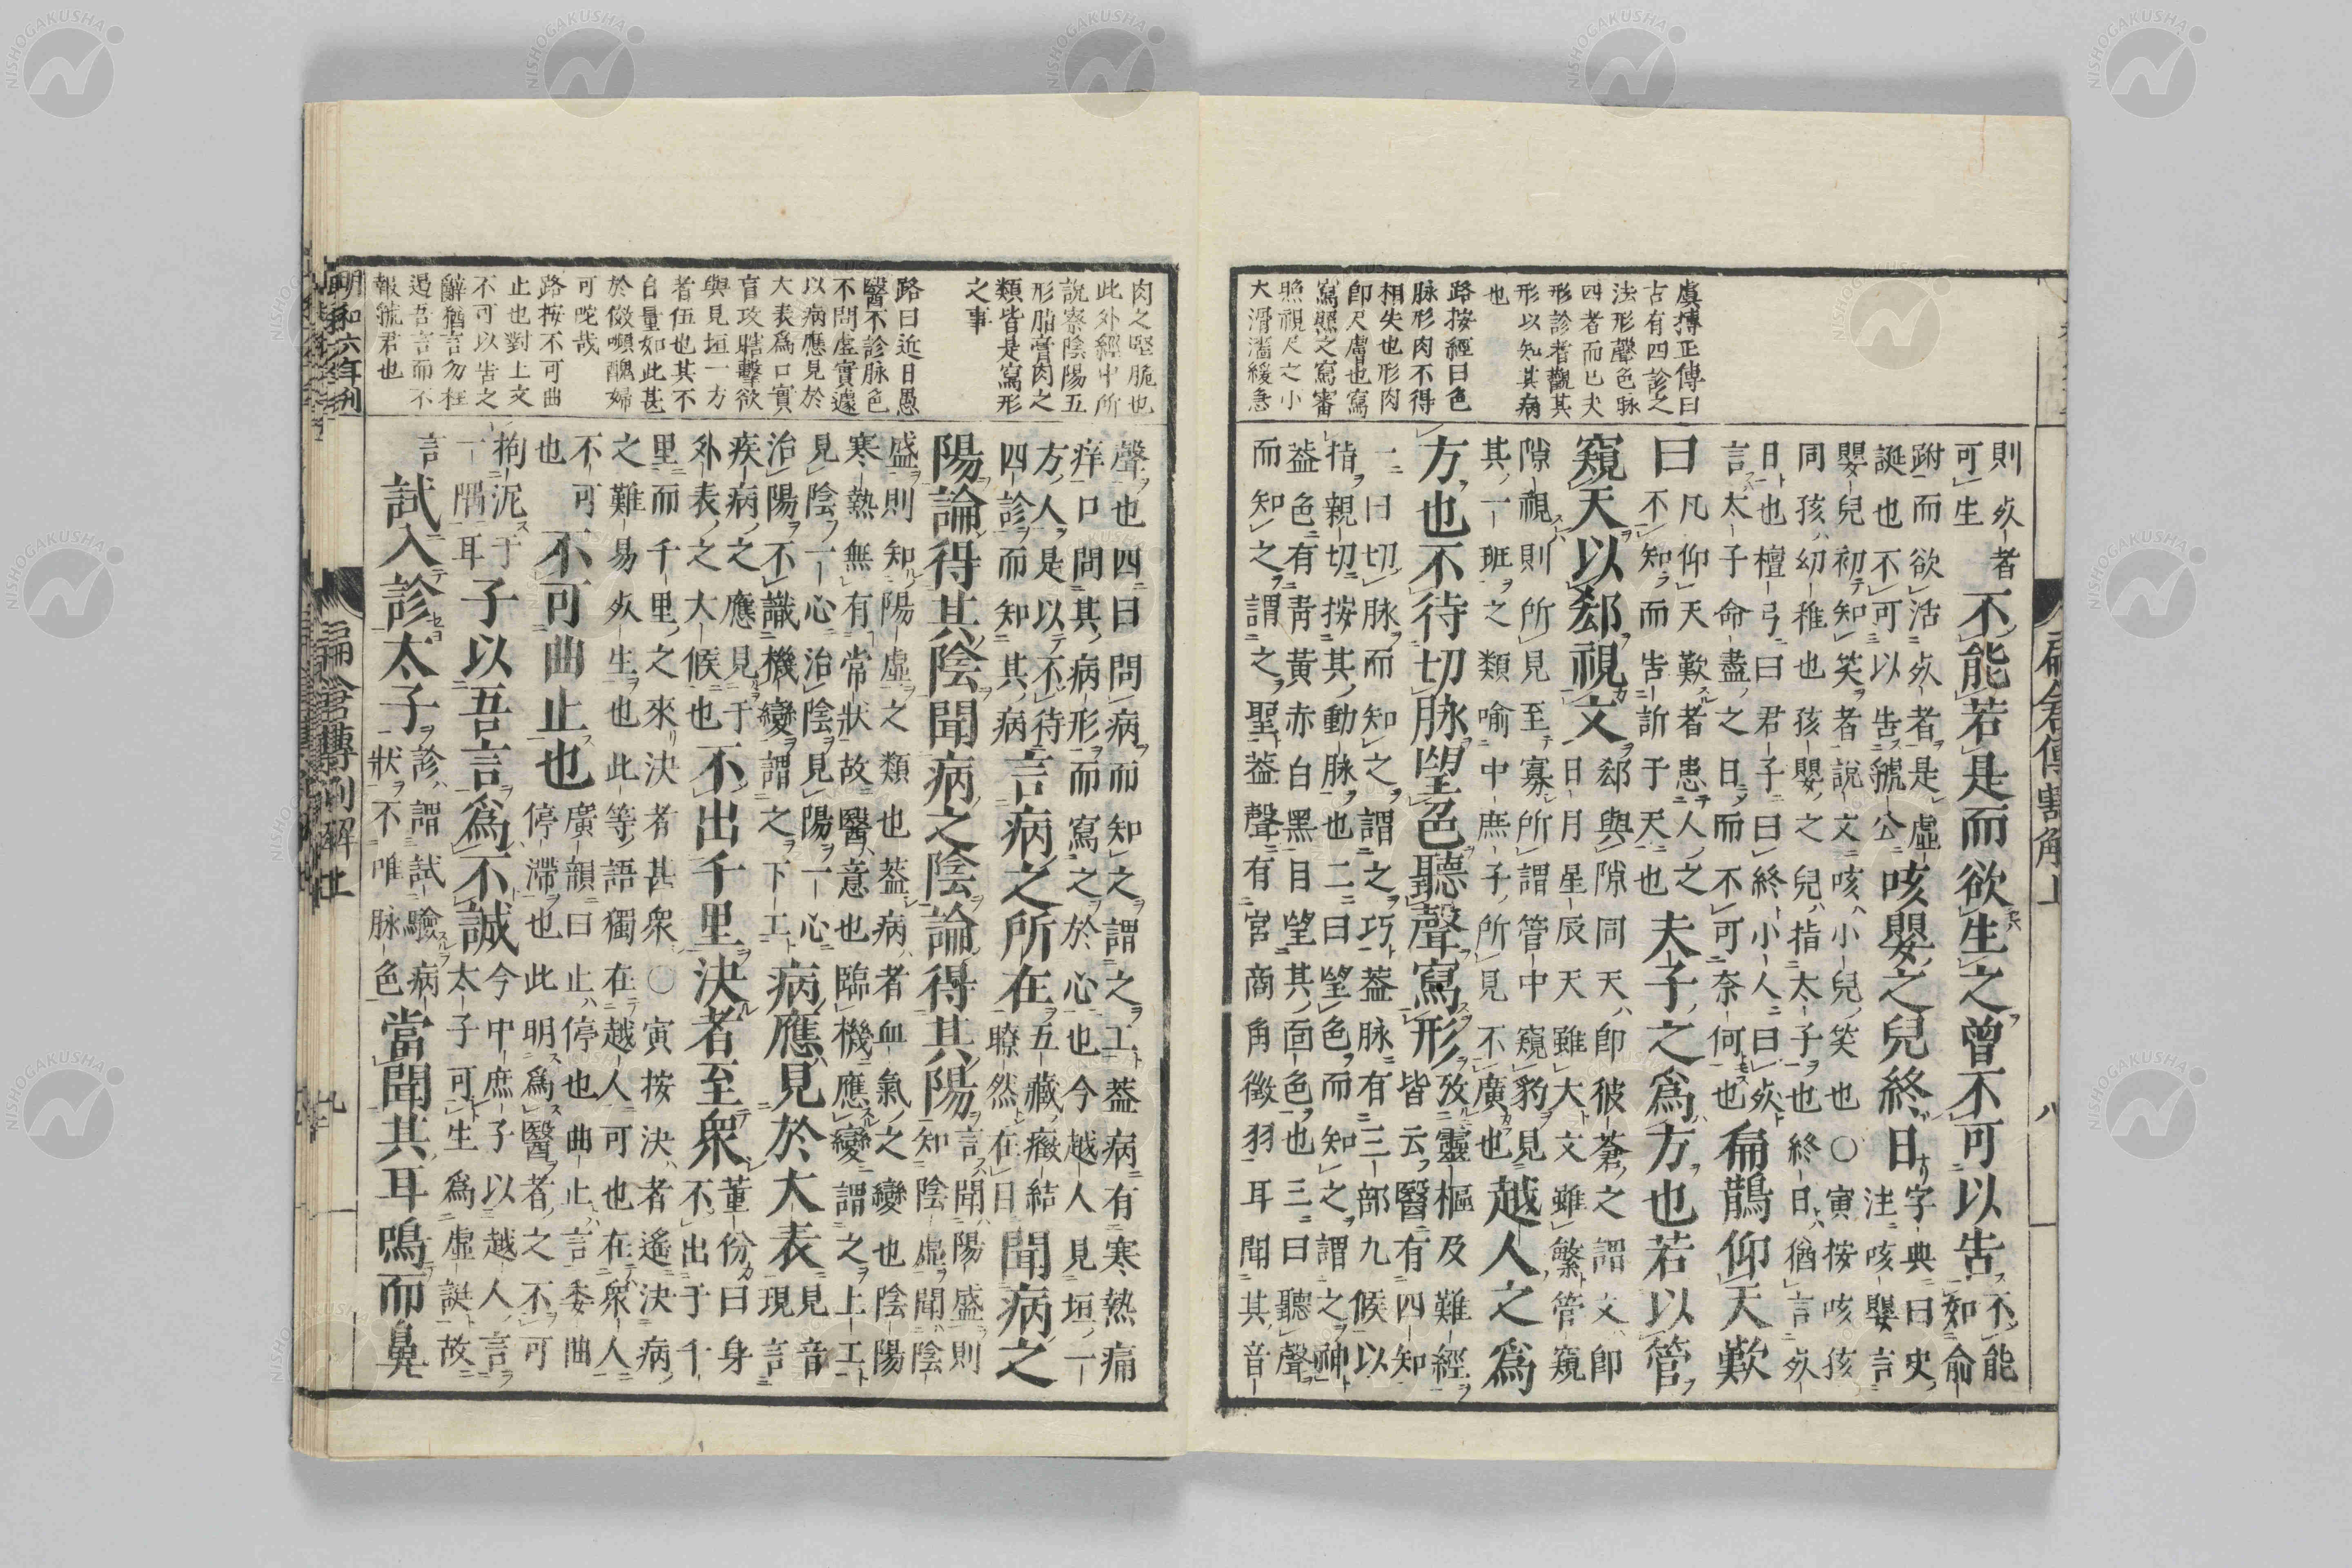 扁倉傳割解上 八
虞摶正傳曰
古有四診之
法形聲色脉
四者而已夫
形診者觀其
形以知其病
也
路按經曰色
脉形肉不得
相失也形肉
卽尺膚也寫
寫照之寫審
照視尺之小
大滑濇緩急
則死者
可生
不能若是而欲生之曾不可以告
不能
如俞
跗而欲活死者是虛
誕也不可以告虢公
咳嬰之兒終日
字典曰史
注咳嬰言
嬰兒初知笑者說文咳小兒笑也○寅按咳孩
同孩幼稚也孩嬰之兒指太子也終日猶言死
日也檀弓曰君子曰終小人曰死
言太子命盡之日而不可奈何也
扁鵲仰天歎
曰
凡仰天歎者患人之
不知而告訴于天也
夫子之爲方也若以管
窺天以郄視文
郄與隙同天卽彼蒼之謂文卽
日月星辰天雖大文雖繁管窺
隙視則所見至寡所謂管中窺豹見
其一班之類喻中庶子所見不廣也
越人之爲
方也不待切脉望色聽聲寫形
攷靈樞及難經
皆云醫有四知
一曰切脉而知之謂之巧蓋脉有三部九候以
指親切按其動脉也二曰望色而知之謂之神
蓋色有靑黃赤白黑目望其面色也三曰聽聲
而知之謂之聖蓋聲有宮商角徵羽耳聞其音
肉之堅脆也
此外經中所
說察陰陽五
形胎膏肉之
類皆是寫形
之事
路曰近日愚
醫不診脉色
不問虛實遽
以病應見於
大表爲口實
盲攻瞎擊欲
與見垣一方
者伍也其不
自量如此甚
於傚嚬醜婦
可咤哉
路按不可曲
止也對上文
不可以告之
辭猶言勿枉
遏吾言而不
報虢君也
聲也四曰問病而知之謂之工蓋病有寒熱痛
痒口問其病形而寫之於心也今越人見垣一
方人是以不待
四診而知其病
言病之所在
五藏癥結
瞭然在目
聞病之
陽論得其陰聞病之陰論得其陽
言聞陽盛則
知陰虛聞陰
盛則知陽虛之類也蓋病者血氣之變也陰陽
寒熱無有常狀故醫意也臨機應變謂之上工
見陰一心治陰見陽一心
治陽不識機變謂之下工
病應見於大表
見音
現言
疾病之應見于
外表之大候也
不出千里決者至衆
董份曰身
不出于千
里而千里之來決者甚衆○寅按決者遙決病
之難易死生也此等語獨在越人可也在衆人
不可
也
不可曲止也
廣韻曰止停也曲止言委曲
停滯也此明爲醫者之不可
拘泥于
一隅耳
子以吾言爲不誠
今中庶子以越人言
太子可生爲虛誕故
言
試入診太子
診謂試驗病
狀不唯脉色
當聞其耳鳴而鼻
明和六年刊
扁倉傳割解上 九